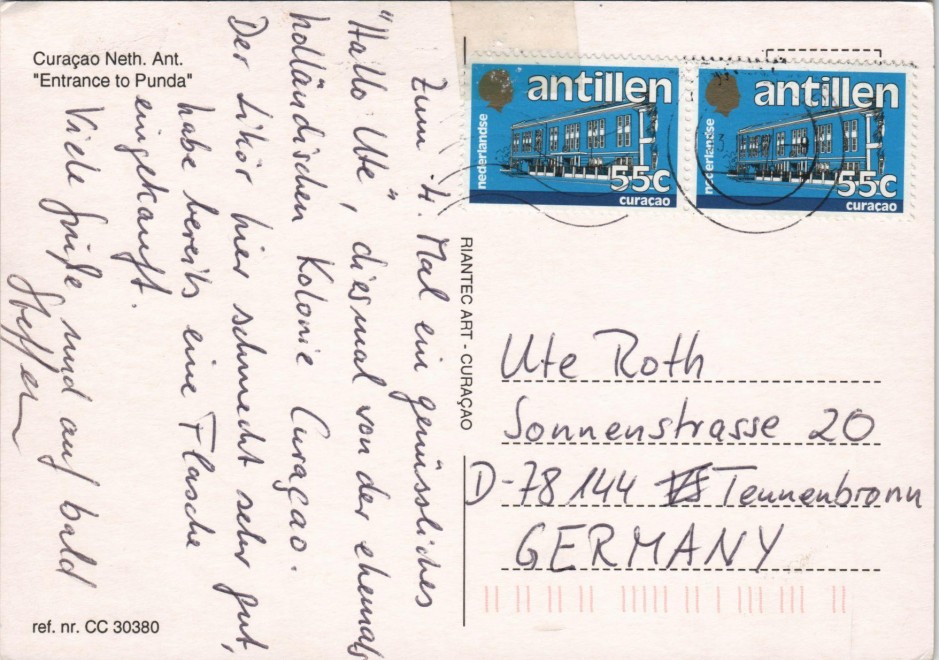 Curaçao Neth. Ant.
"Entrance to Punda"
Zum 4. Mal ein genüssliches
"Hallo Ute", diesmal von der ehemals
holländischen Kolonie Curaçao.
Der Likör hier schmeckt sehr gut,
habe bereits eine Flasche
eingekauft.
Viele Grüße und auf bald
Steffen
ref. nr. CC 30380
RIANTEC ART - CURAÇAO
nederlandse
antillen
55c
curaçao
nederlandse
antillen
55c
curaçao
Ute Roth
Sonnenstrasse 20
D-78144 Tennenbronn
GERMANY